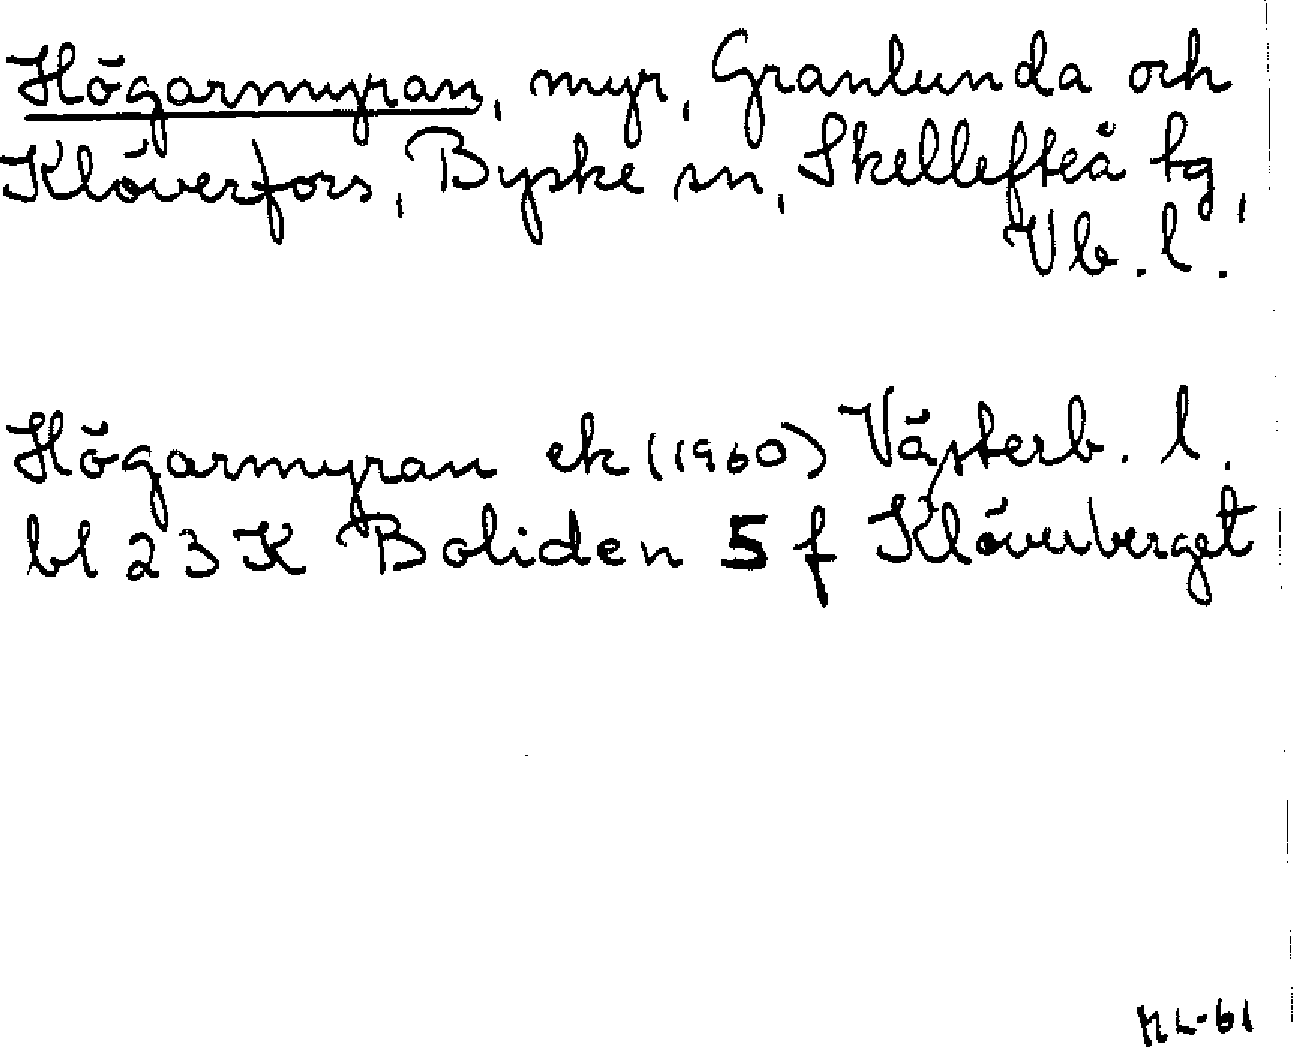 Högarmyran, myr, Granlunda och
Klöverfors, Byske sn, Skellefteå tg,
Vb. l.
Högarmyran ek (1960) Västerb. l.
bl 23 K Boliden 5 f Klöverberget
ML-61